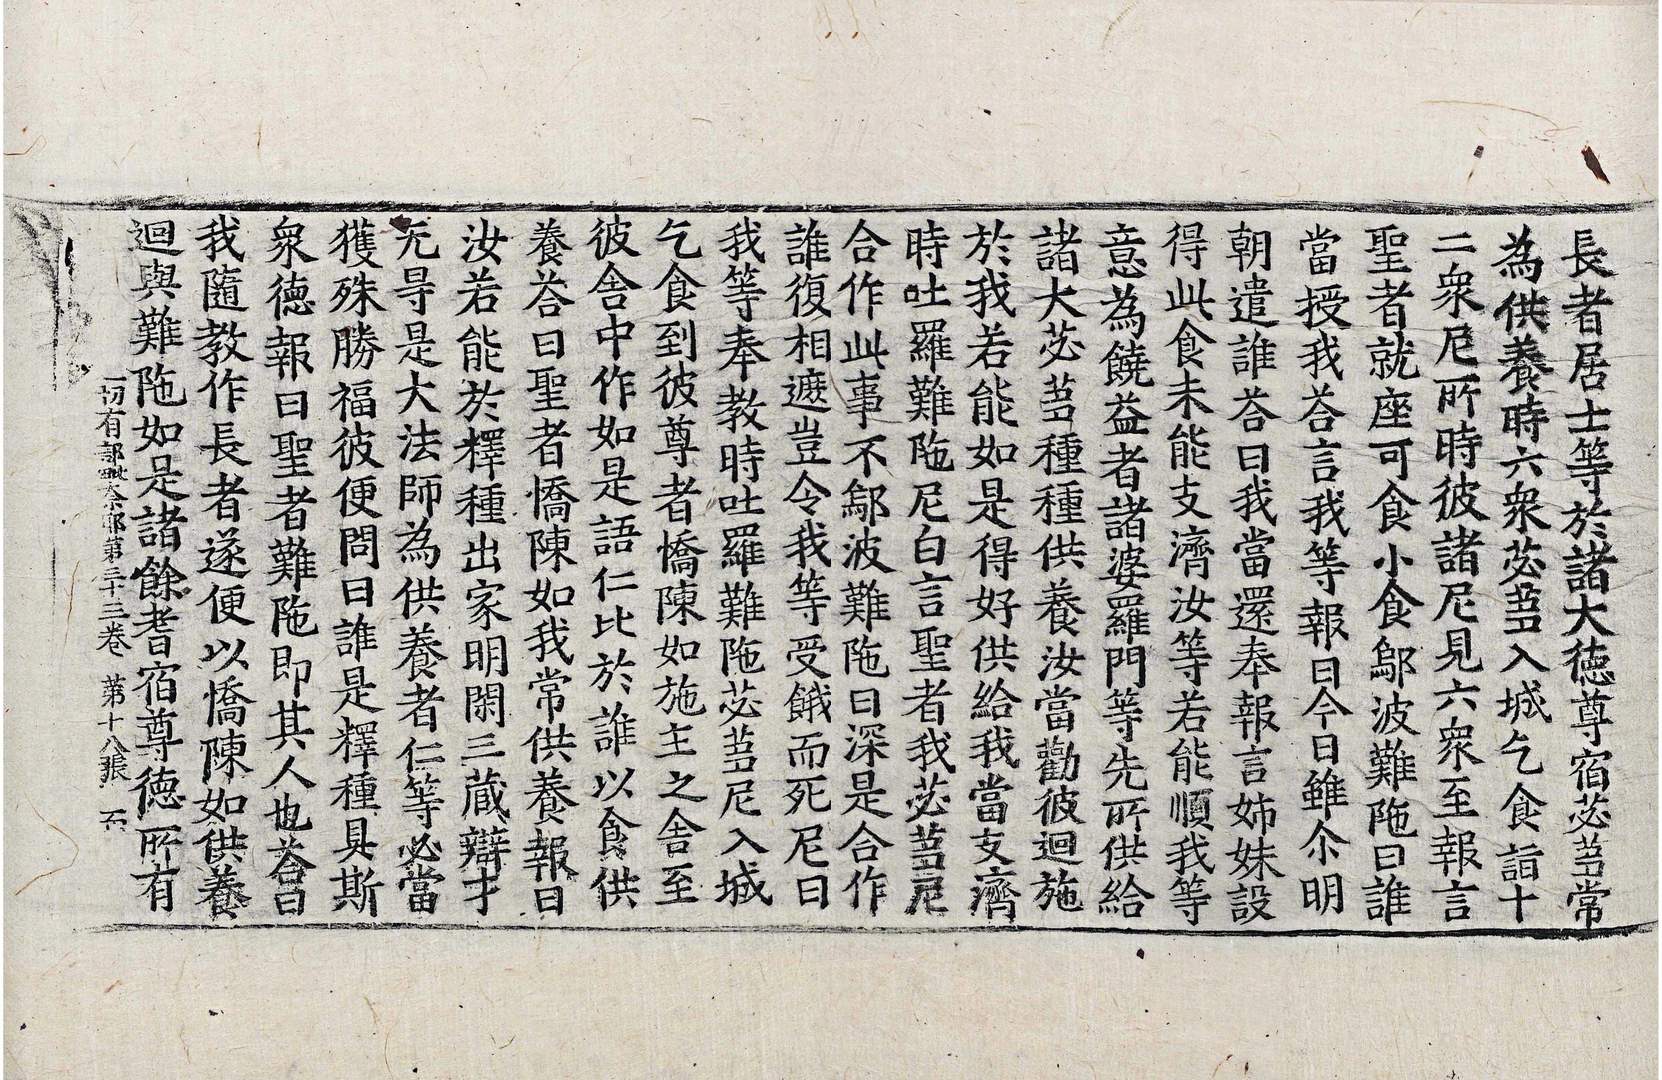 長者居士等於諸大徳尊宿苾芻常
為供養時六衆苾芻入城乞食詣十
二衆尼所時彼諸尼見六衆至報言
聖者就座可食小食鄔波難陁曰誰
當授我荅言我等報曰今日雖尒明
朝遣誰荅曰我當還奉報言姊妹設
得此食未能支濟汝等若能順我等
意為饒益者諸婆羅門等先所供給
諸大苾芻種種供養汝當勸彼迴施
於我若能如是得好供給我當支濟
時吐羅難陁尼白言聖者我苾芻尼
合作此事不鄔波難陁曰深是合作
誰復相遮豈令我等受餓而死尼曰
我等奉教時吐羅難陁苾芻尼入城
乞食到彼尊者憍陳如施主之舍至
彼舍中作如是語仁比於誰以食供
養荅曰聖者憍陳如我常供養報曰
汝若能於釋種出家明閑三蔵辯才
无㝵是大法師為供養者仁等必當
獲殊勝福彼便問曰誰是釋種具斯
衆德報曰聖者難陁即其人也荅曰
我隨教作長者遂便以憍陳如供養
迴與難陁如是諸餘耆宿尊德所有
一切有部毗奈耶第三十三卷 第十八張